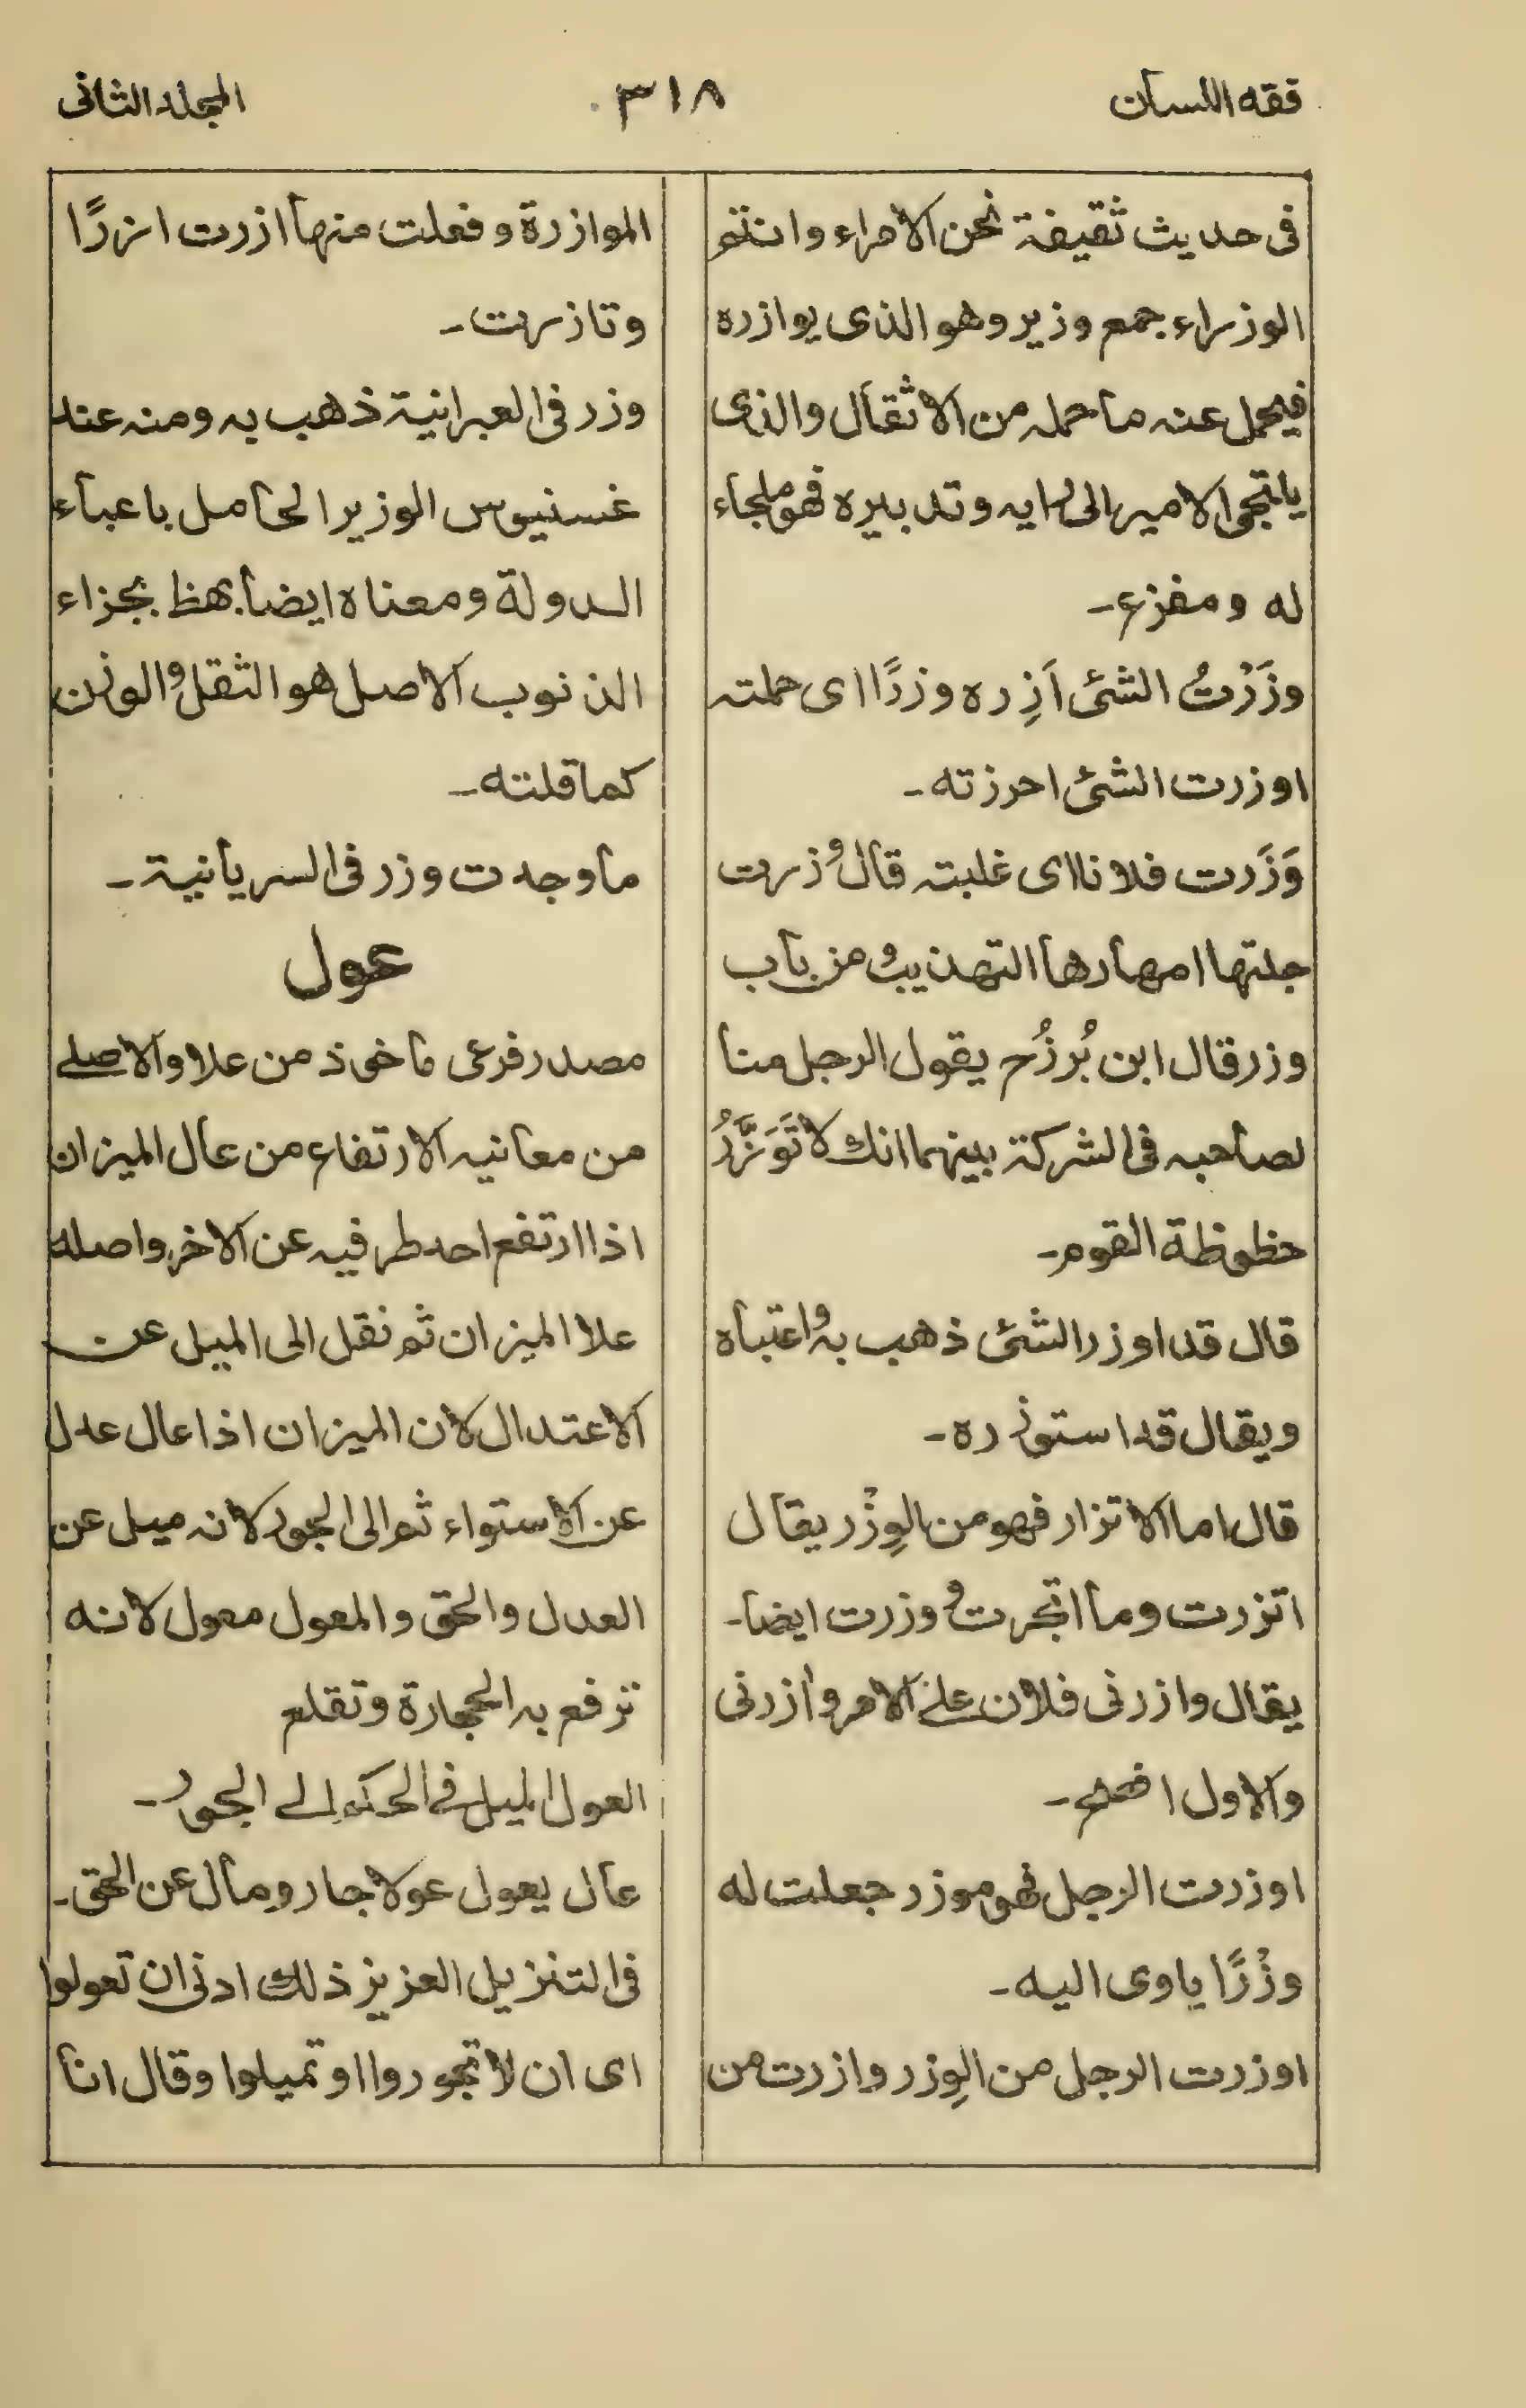 فقه اللسان
٣١٨
المجلد الثانی
فی حدیث ثقیفة نحن الامراء وانتم
الوزراء جمع وزیر وهو الذی یوازره
فیحمل عنه ما حمله من الاثقال والذی
یاتجی الامیر الی رایه وتدبیره فهو ملجاء
له ومفزع۔
وزَرْتُ الشئ اَزِره وزرًا ای حملته
اوزرت الشئ احرزته۔
وَزَرت فلانا ای غلبته قال وزرت
جلتها امهارها التهذیب و من باب
وزر قال ابن بُرزُح یقول الرجل منا
لصاحبه فی الشرکة بینهما انك لا تَوَزَّرُ
حظوظة القوم۔
قال قد اوزر الشئ ذهب به واعتباه
ویقال قد استوزره۔
قال اما الاتزار فهو من الوِزْر یقال
اتزرت وما اتجرت و وزرت ایضا۔
یقال وازرنی فلان علے الامر وآزرنی
والاول افصح۔
اوزرت الرجل فهو موزر جعلت له
وزْرًا یاوی الیه۔
اوزرت الرجل من الوِزر وازرت من
الموازرة وفعلت منها ازرت ازرًا
وتازرت۔
وزر فی العبرانیة ذهب به ومنه عند
غسنیوس الوزیر الحامل باعباء
الدولة ومعناه ایضا بهظ بجزاء
الذنوب الاصل هو الثقل والوزن
کما قلته۔
ما وجدت وزر فی السریانیة۔
عول
مصدر فرعی ماخوذ من علا والاصلے
من معانیه الارتفاع من عال المیزان
اذا ارتفع احد طرفیه عن الاخر واصله
علا المیزان ثم نقل الی المیل عن
الاعتدال لان المیزان اذا عال عدل
عن الاستواء ثم الی الجور لانه میل عن
العدل والحق والمعول معول لانه
ترفع به الحجارة وتقلع
العول المیل فی الحکم الے الجور۔
عال یعول عولا جار ومال عن الحق۔
فی التنزیل العزیز ذلك ادنی ان تعولوا
ای ان لا تجوروا او تمیلوا وقال انا